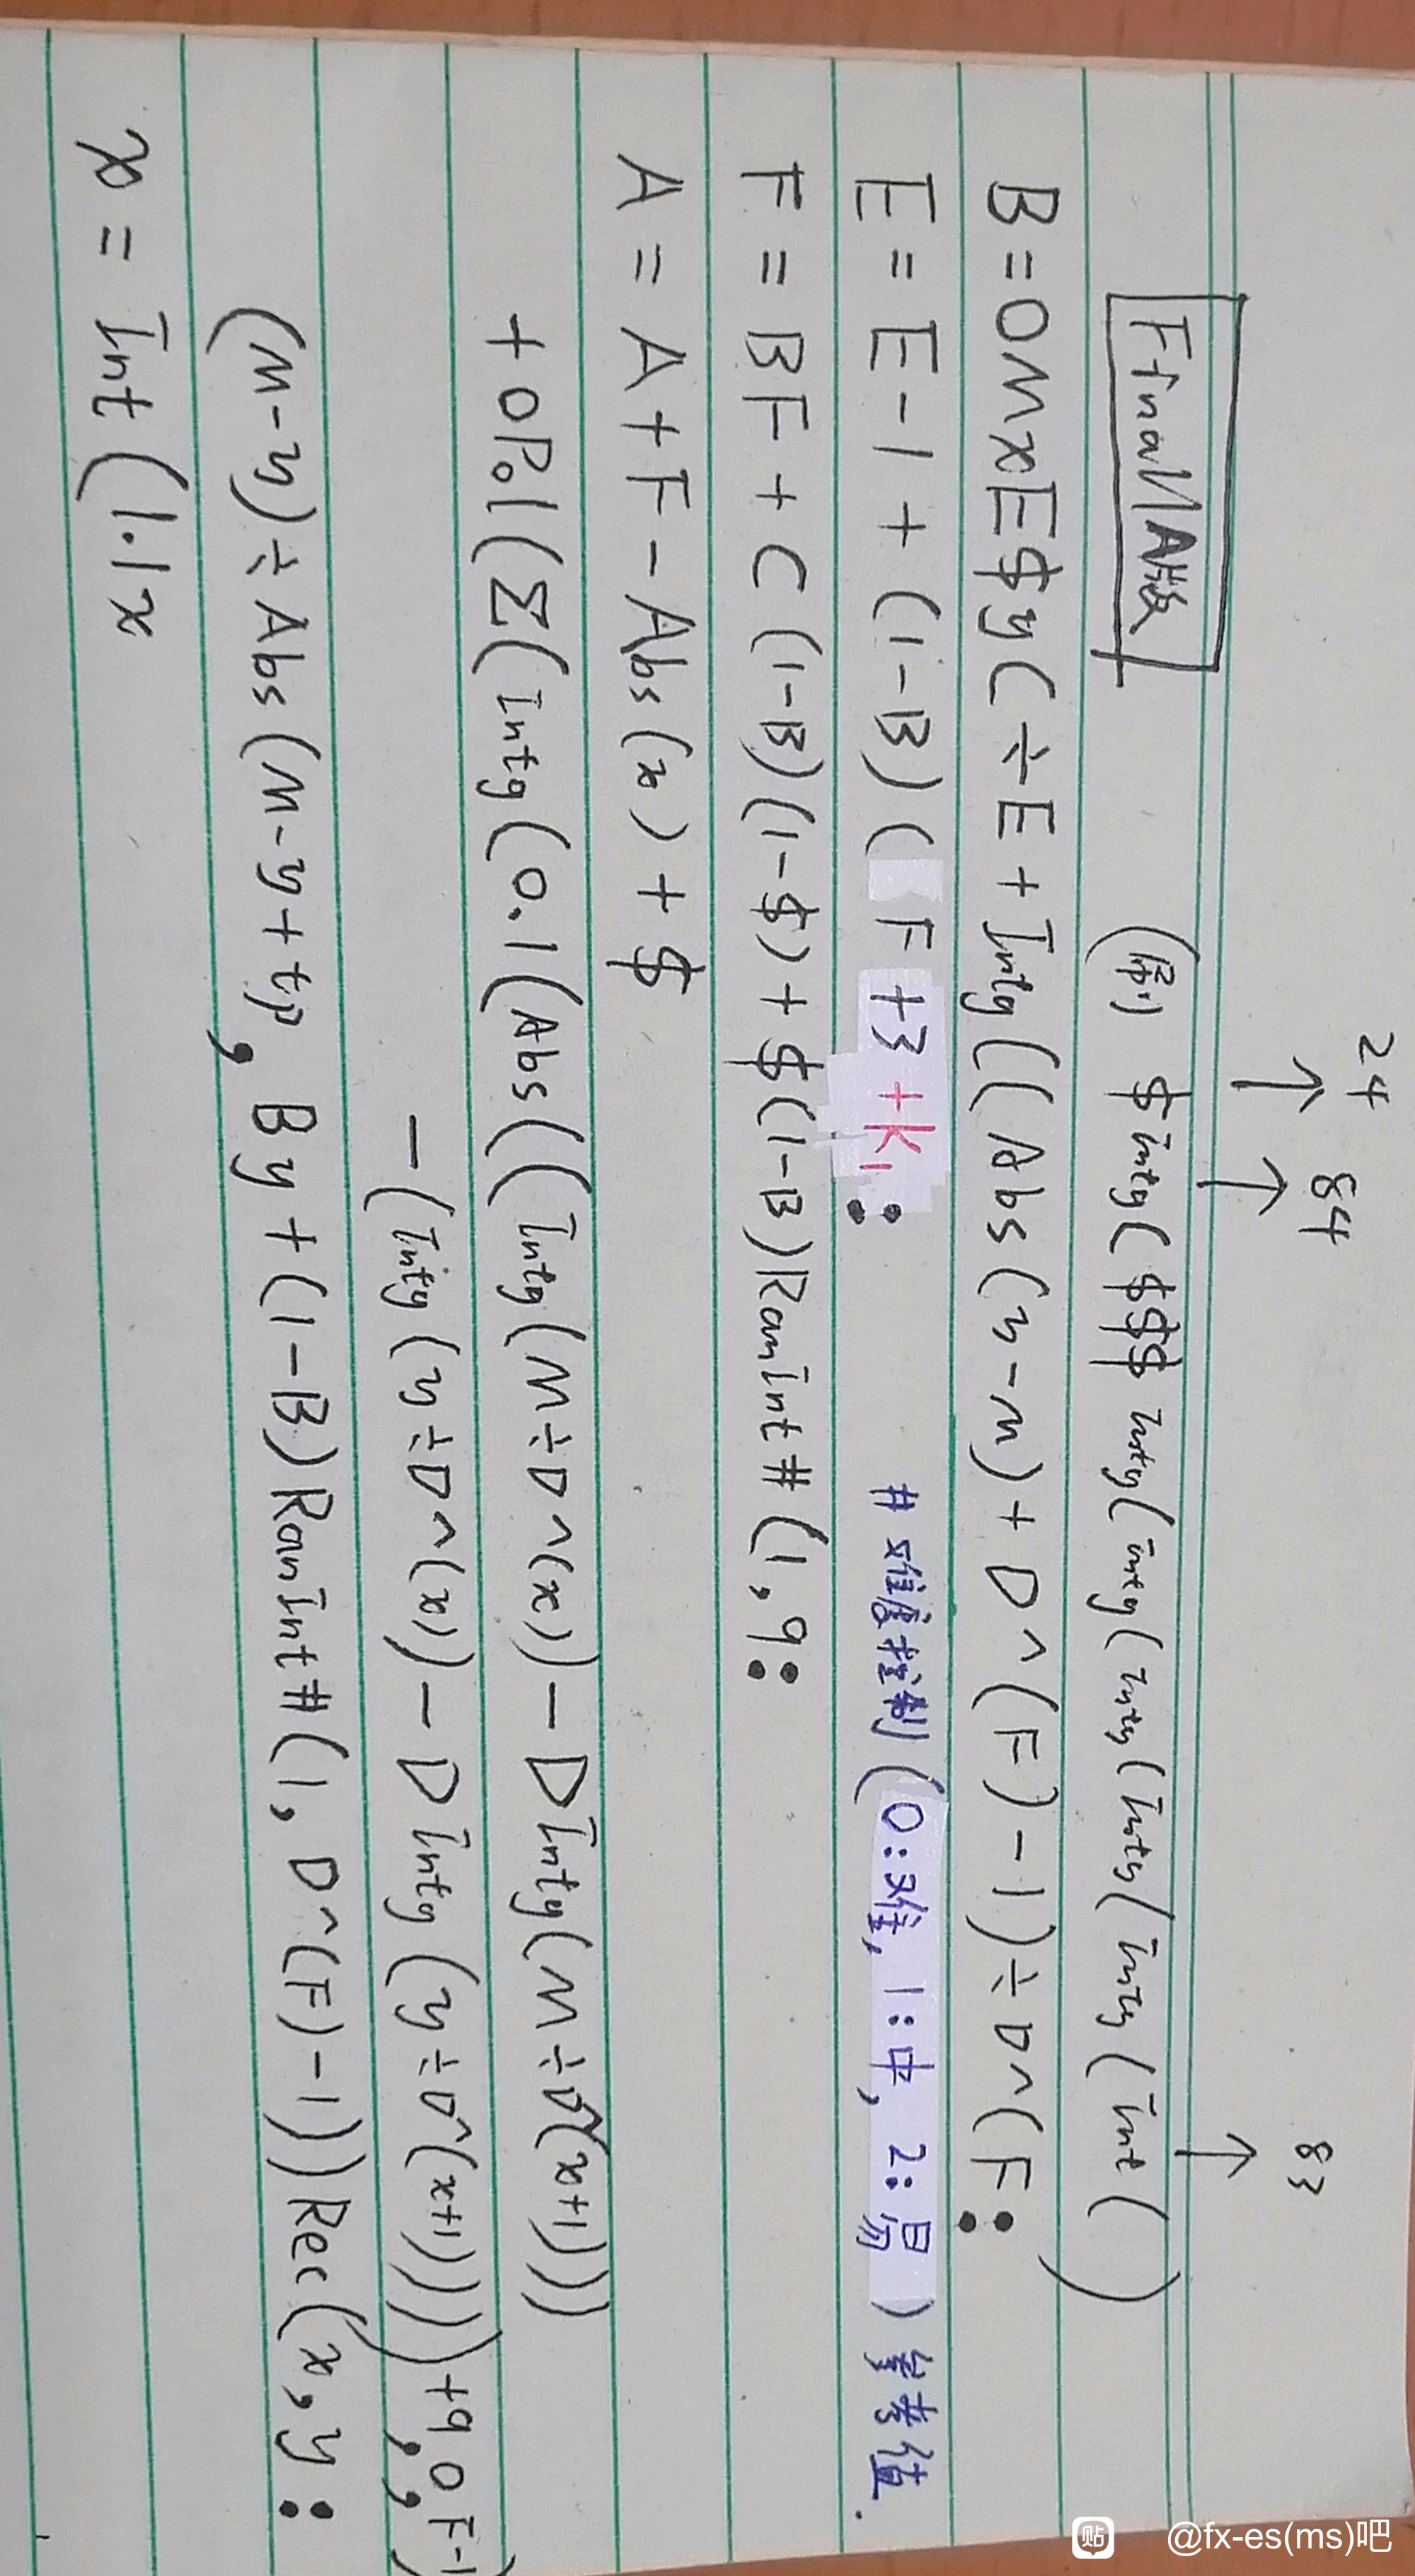 24 84 83
↑ ↑ ↑
Final/A版 (序1 $ intg( $$$ intg(intg(intg(intg(intg(int( )
B=0MxE$y(÷E+Intg((Abs(y-M)+D^(F)-1)÷D^(F:
E=E-1+(1-B)(F+3+k1: #难度控制(0:难,1:中,2:易)参考值.
F=BF+C(1-B)(1-$)+$(1-B)RanInt#(1,9:
A=A+F-Abs(x)+$
+0Pol(Σ(Intg(0.1(Abs((Intg(M÷D^(x))-DIntg(M÷D^(x+1)))
-(Intg(y÷D^(x))-DIntg(y÷D^(x+1))))+9,0,F-1)
(M-y)÷Abs(M-y+tp,By+(1-B)RanInt#(1,D^(F)-1))Rec(x,y:
x=Int(1.1x
贴 @fx-es(ms)吧